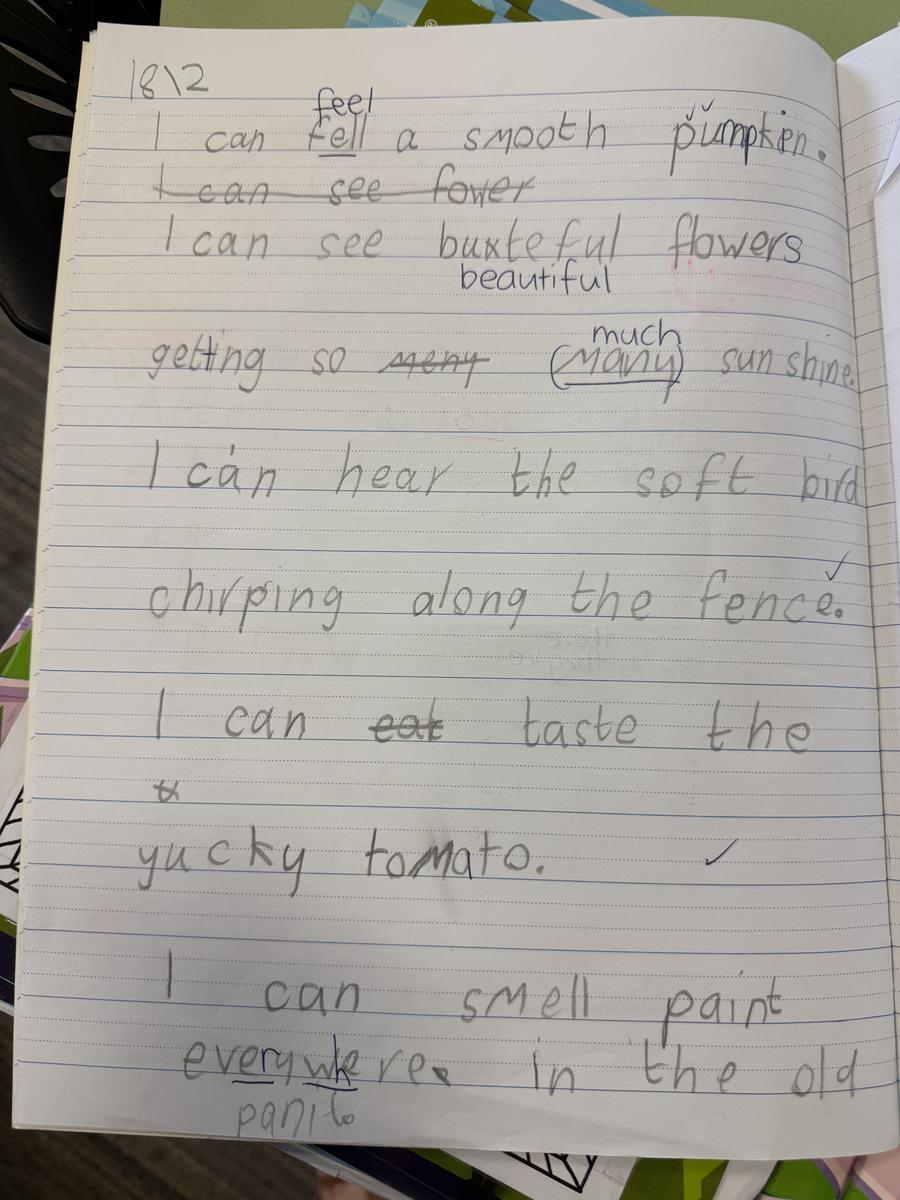 18\2
feel
I can fell a smooth pumpkin.
I can see fower
I can see buxteful flowers
beautiful
much
getting so meny (many) sunshine.
I can hear the soft bird
chirping along the fence.
I can eat taste the
yucky tomato.
I can smell paint
everywhere. in the old